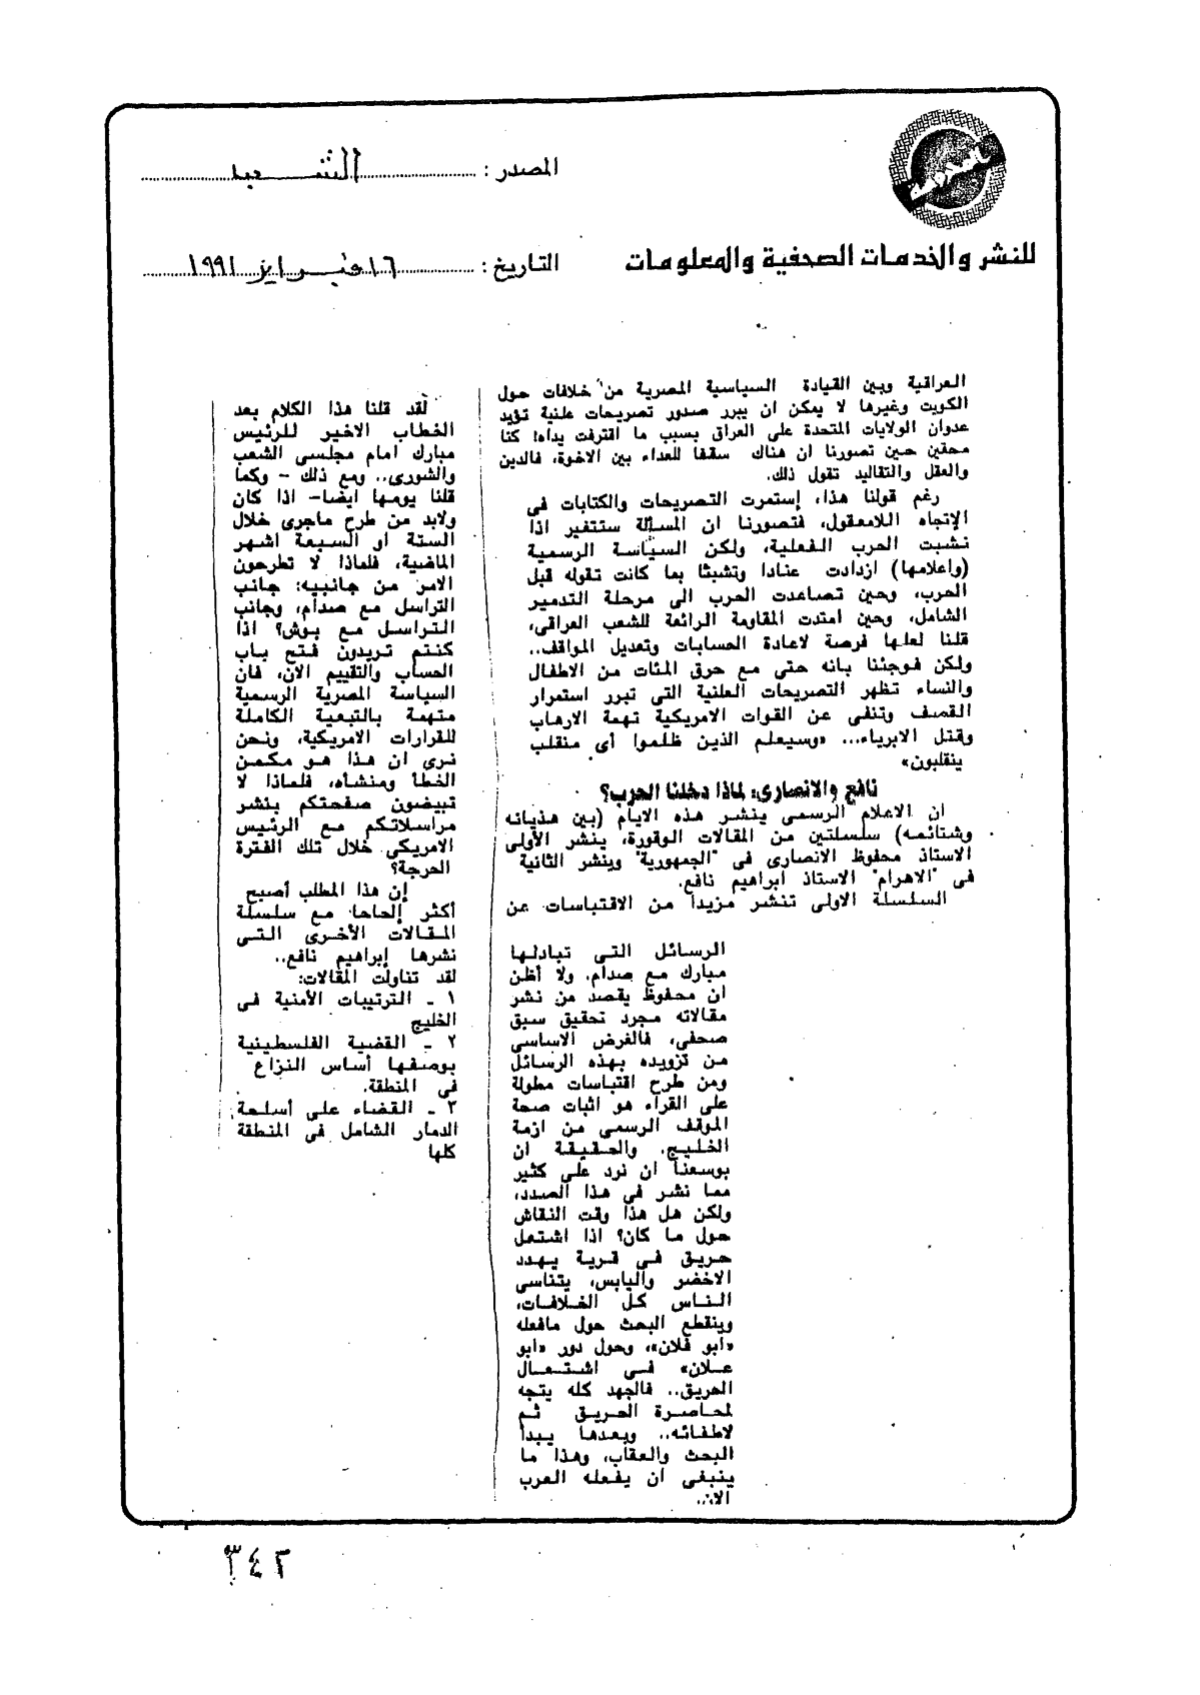 المصدر : الشعب
للنشر والخدمات الصحفية والمعلومات
التاريخ : ١٦ فبراير ١٩٩١
العراقية وبين القيادة السياسية المصرية من خلافات حول
الكويت وغيرها لا يمكن ان يبرر صدور تصريحات علنية تؤيد
عدوان الولايات المتحدة على العراق بسبب ما اقترفت يداه! كنا
محقين حين تصورنا ان هناك سقفا للعداء بين الاخوة، فالدين
والعقل والتقاليد تقول ذلك.
رغم قولنا هذا، إستمرت التصريحات والكتابات فى
الإتجاه اللامعقول، فتصورنا ان المسألة ستتغير اذا
نشبت الحرب الفعلية، ولكن السياسة الرسمية
(واعلامها) ازدادت عنادا وتشبثا بما كانت تقوله قبل
الحرب، وحين تصاعدت الحرب الى مرحلة التدمير
الشامل، وحين امتدت المقاومة الرائعة للشعب العراقى،
قلنا لعلها فرصة لاعادة الحسابات وتعديل المواقف..
ولكن فوجئنا بانه حتى مع حرق المئات من الاطفال
والنساء تظهر التصريحات العلنية التى تبرر استمرار
القصف وتنفى عن القوات الامريكية تهمة الارهاب
وقتل الابرياء... «وسيعلم الذين ظلموا أى منقلب
ينقلبون»
نافع والانصارى: لماذا دخلنا الحرب؟
ان الاعلام الرسمى ينشر هذه الايام (بين هذيانه
وشتائمه) سلسلتين من المقالات الوقورة، ينشر الأولى
الاستاذ محفوظ الانصارى فى "الجمهورية" وينشر الثانية
فى "الاهرام" الاستاذ ابراهيم نافع.
السلسلة الاولى تنشر مزيدا من الاقتباسات عن
الرسائل التى تبادلها
مبارك مع صدام. ولا أظن
ان محفوظ يقصد من نشر
مقالاته مجرد تحقيق سبق
صحفى، فالغرض الاساسى
من تزويده بهذه الرسائل
ومن طرح اقتباسات مطولة
على القراء هو اثبات صحة
الموقف الرسمى من ازمة
الخليج. والحقيقة ان
بوسعنا ان نرد على كثير
مما نشر فى هذا الصدد،
ولكن هل هذا وقت النقاش
حول ما كان؟ اذا اشتعل
حريق فى قرية يهدد
الاخضر واليابس، يتناسى
الناس كل الخلافات،
وينقطع البحث حول مافعله
«ابو فلان»، وحول دور «ابو
علان» فى اشتعال
الحريق.. فالجهد كله يتجه
لمحاصرة الحريق ثم
لاطفائه.. وبعدها يبدأ
البحث والعقاب، وهذا ما
ينبغى ان يفعله العرب
الان.
لقد قلنا هذا الكلام بعد
الخطاب الاخير للرئيس
مبارك امام مجلسى الشعب
والشورى.. ومع ذلك - وكما
قلنا يومها ايضا- اذا كان
ولابد من طرح ماجرى خلال
الستة او السبعة اشهر
الماضية، فلماذا لا تطرحون
الامر من جانبيه: جانب
التراسل مع صدام، وجانب
التراسل مع بوش؟ اذا
كنتم تريدون فتح باب
الحساب والتقييم الان، فان
السياسة المصرية الرسمية
متهمة بالتبعية الكاملة
للقرارات الامريكية، ونحن
نرى ان هذا هو مكمن
الخطأ ومنشأه، فلماذا لا
تبيضون صفحتكم بنشر
مراسلاتكم مع الرئيس
الامريكى خلال تلك الفترة
الحرجة؟
إن هذا المطلب أصبح
أكثر إلحاحا مع سلسلة
المقالات الأخرى التى
نشرها إبراهيم نافع..
لقد تناولت المقالات:
١ ـ الترتيبات الأمنية فى
الخليج
٢ ـ القضية الفلسطينية
بوصفها أساس النزاع
فى المنطقة.
٣ ـ القضاء على أسلحة
الدمار الشامل فى المنطقة
كلها
٣٤٢